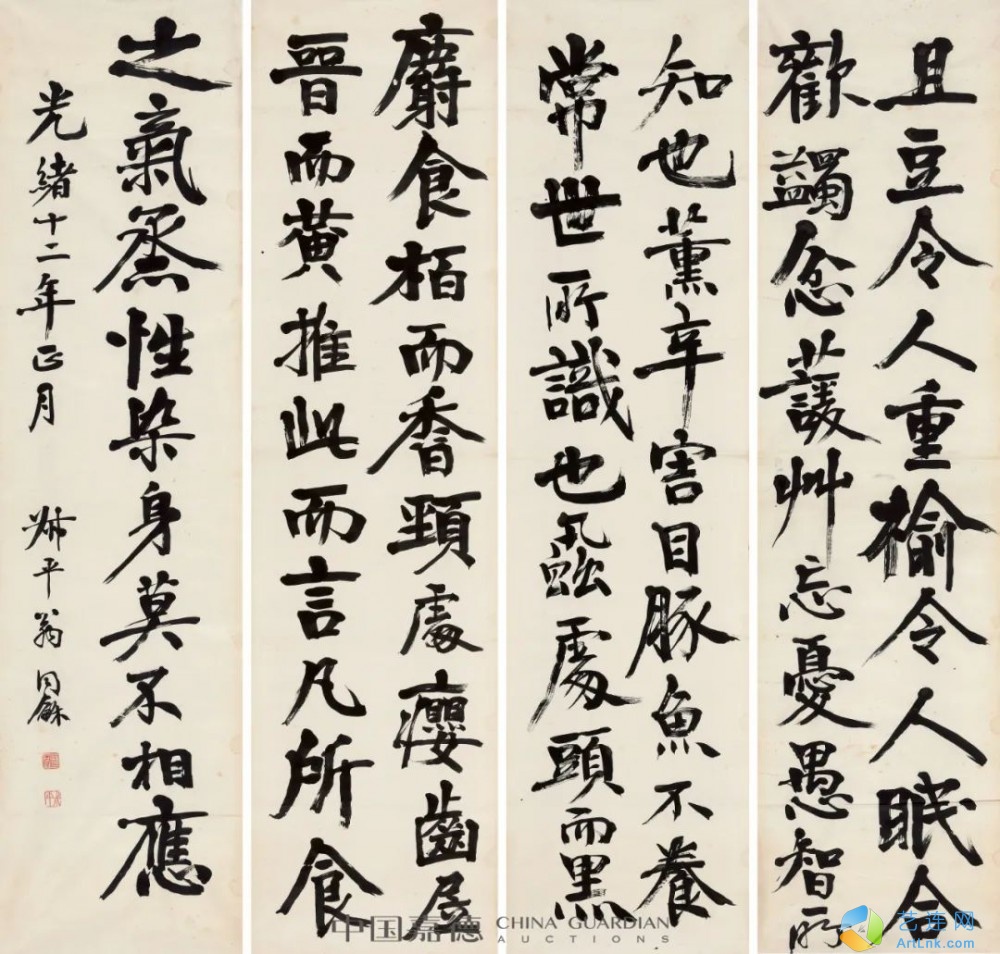 且豆令人重榆令人眠合
歡蠲忿蘐艸忘憂愚智所
知也薰辛害目豚魚不養
常世所識也蝨處頭而黑
麝食栢而香頸處癭齒居
晉而黃推此而言凡所食
之氣烝性染身莫不相應
光緒十二年正月 叔平翁同龢
中国嘉德 CHINA GUARDIAN
AUCTIONS
艺连网
ArtLnk.com